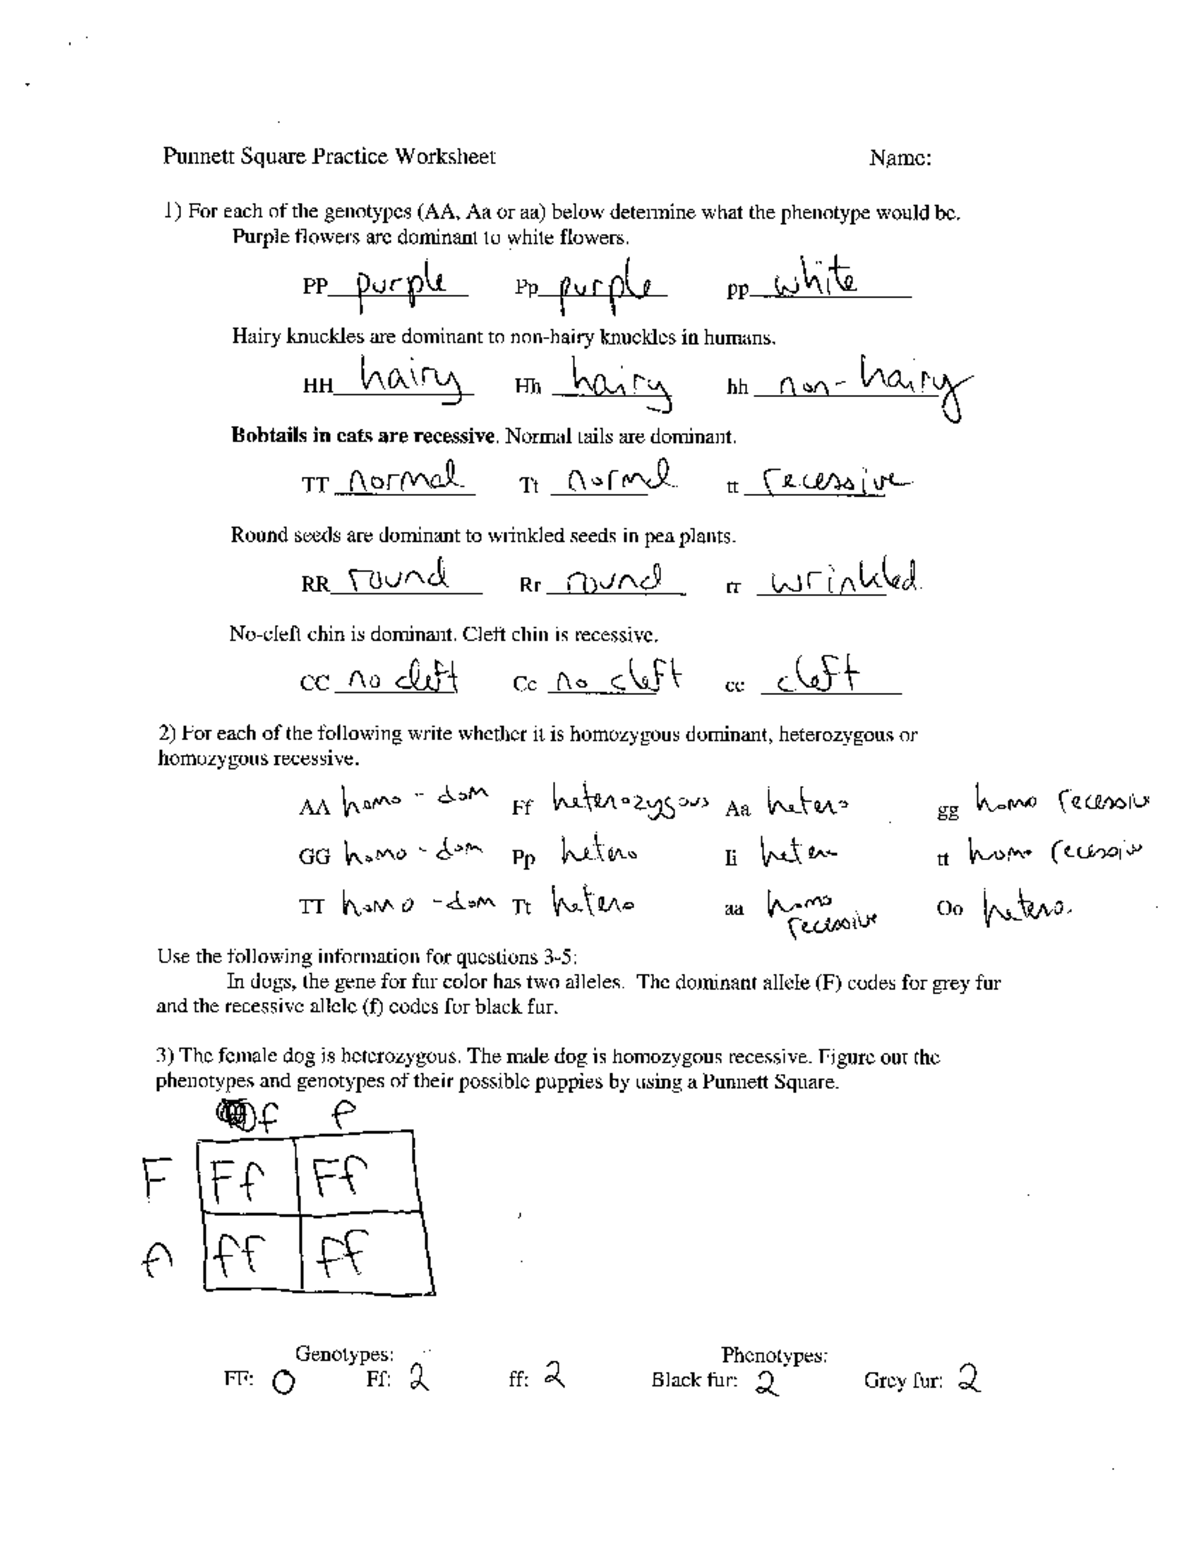 Punnett Square Practice Worksheet Name:
1) For each of the genotypes (AA, Aa or aa) below determine what the phenotype would be.
Purple flowers are dominant to white flowers.
PP purple Pp purple pp white
Hairy knuckles are dominant to non-hairy knuckles in humans.
HH hairy Hh hairy hh non-hairy
Bobtails in cats are recessive. Normal tails are dominant.
TT normal Tt norml tt recessive
Round seeds are dominant to wrinkled seeds in pea plants.
RR round Rr round rr wrinkled
No-cleft chin is dominant. Cleft chin is recessive.
CC no cleft Cc no cleft cc cleft
2) For each of the following write whether it is homozygous dominant, heterozygous or
homozygous recessive.
AA homo - dom Ff heterozygous Aa hetero gg homo recessive
GG homo - dom Pp hetero Ii hetero tt homo recessive
TT homo - dom Tt hetero aa homo recessive Oo hetero.
Use the following information for questions 3-5:
In dogs, the gene for fur color has two alleles. The dominant allele (F) codes for grey fur
and the recessive allele (f) codes for black fur.
3) The female dog is heterozygous. The male dog is homozygous recessive. Figure out the
phenotypes and genotypes of their possible puppies by using a Punnett Square.
f f
F Ff Ff
f ff ff
Genotypes: Phenotypes:
FF: 0 Ff: 2 ff: 2 Black fur: 2 Grey fur: 2